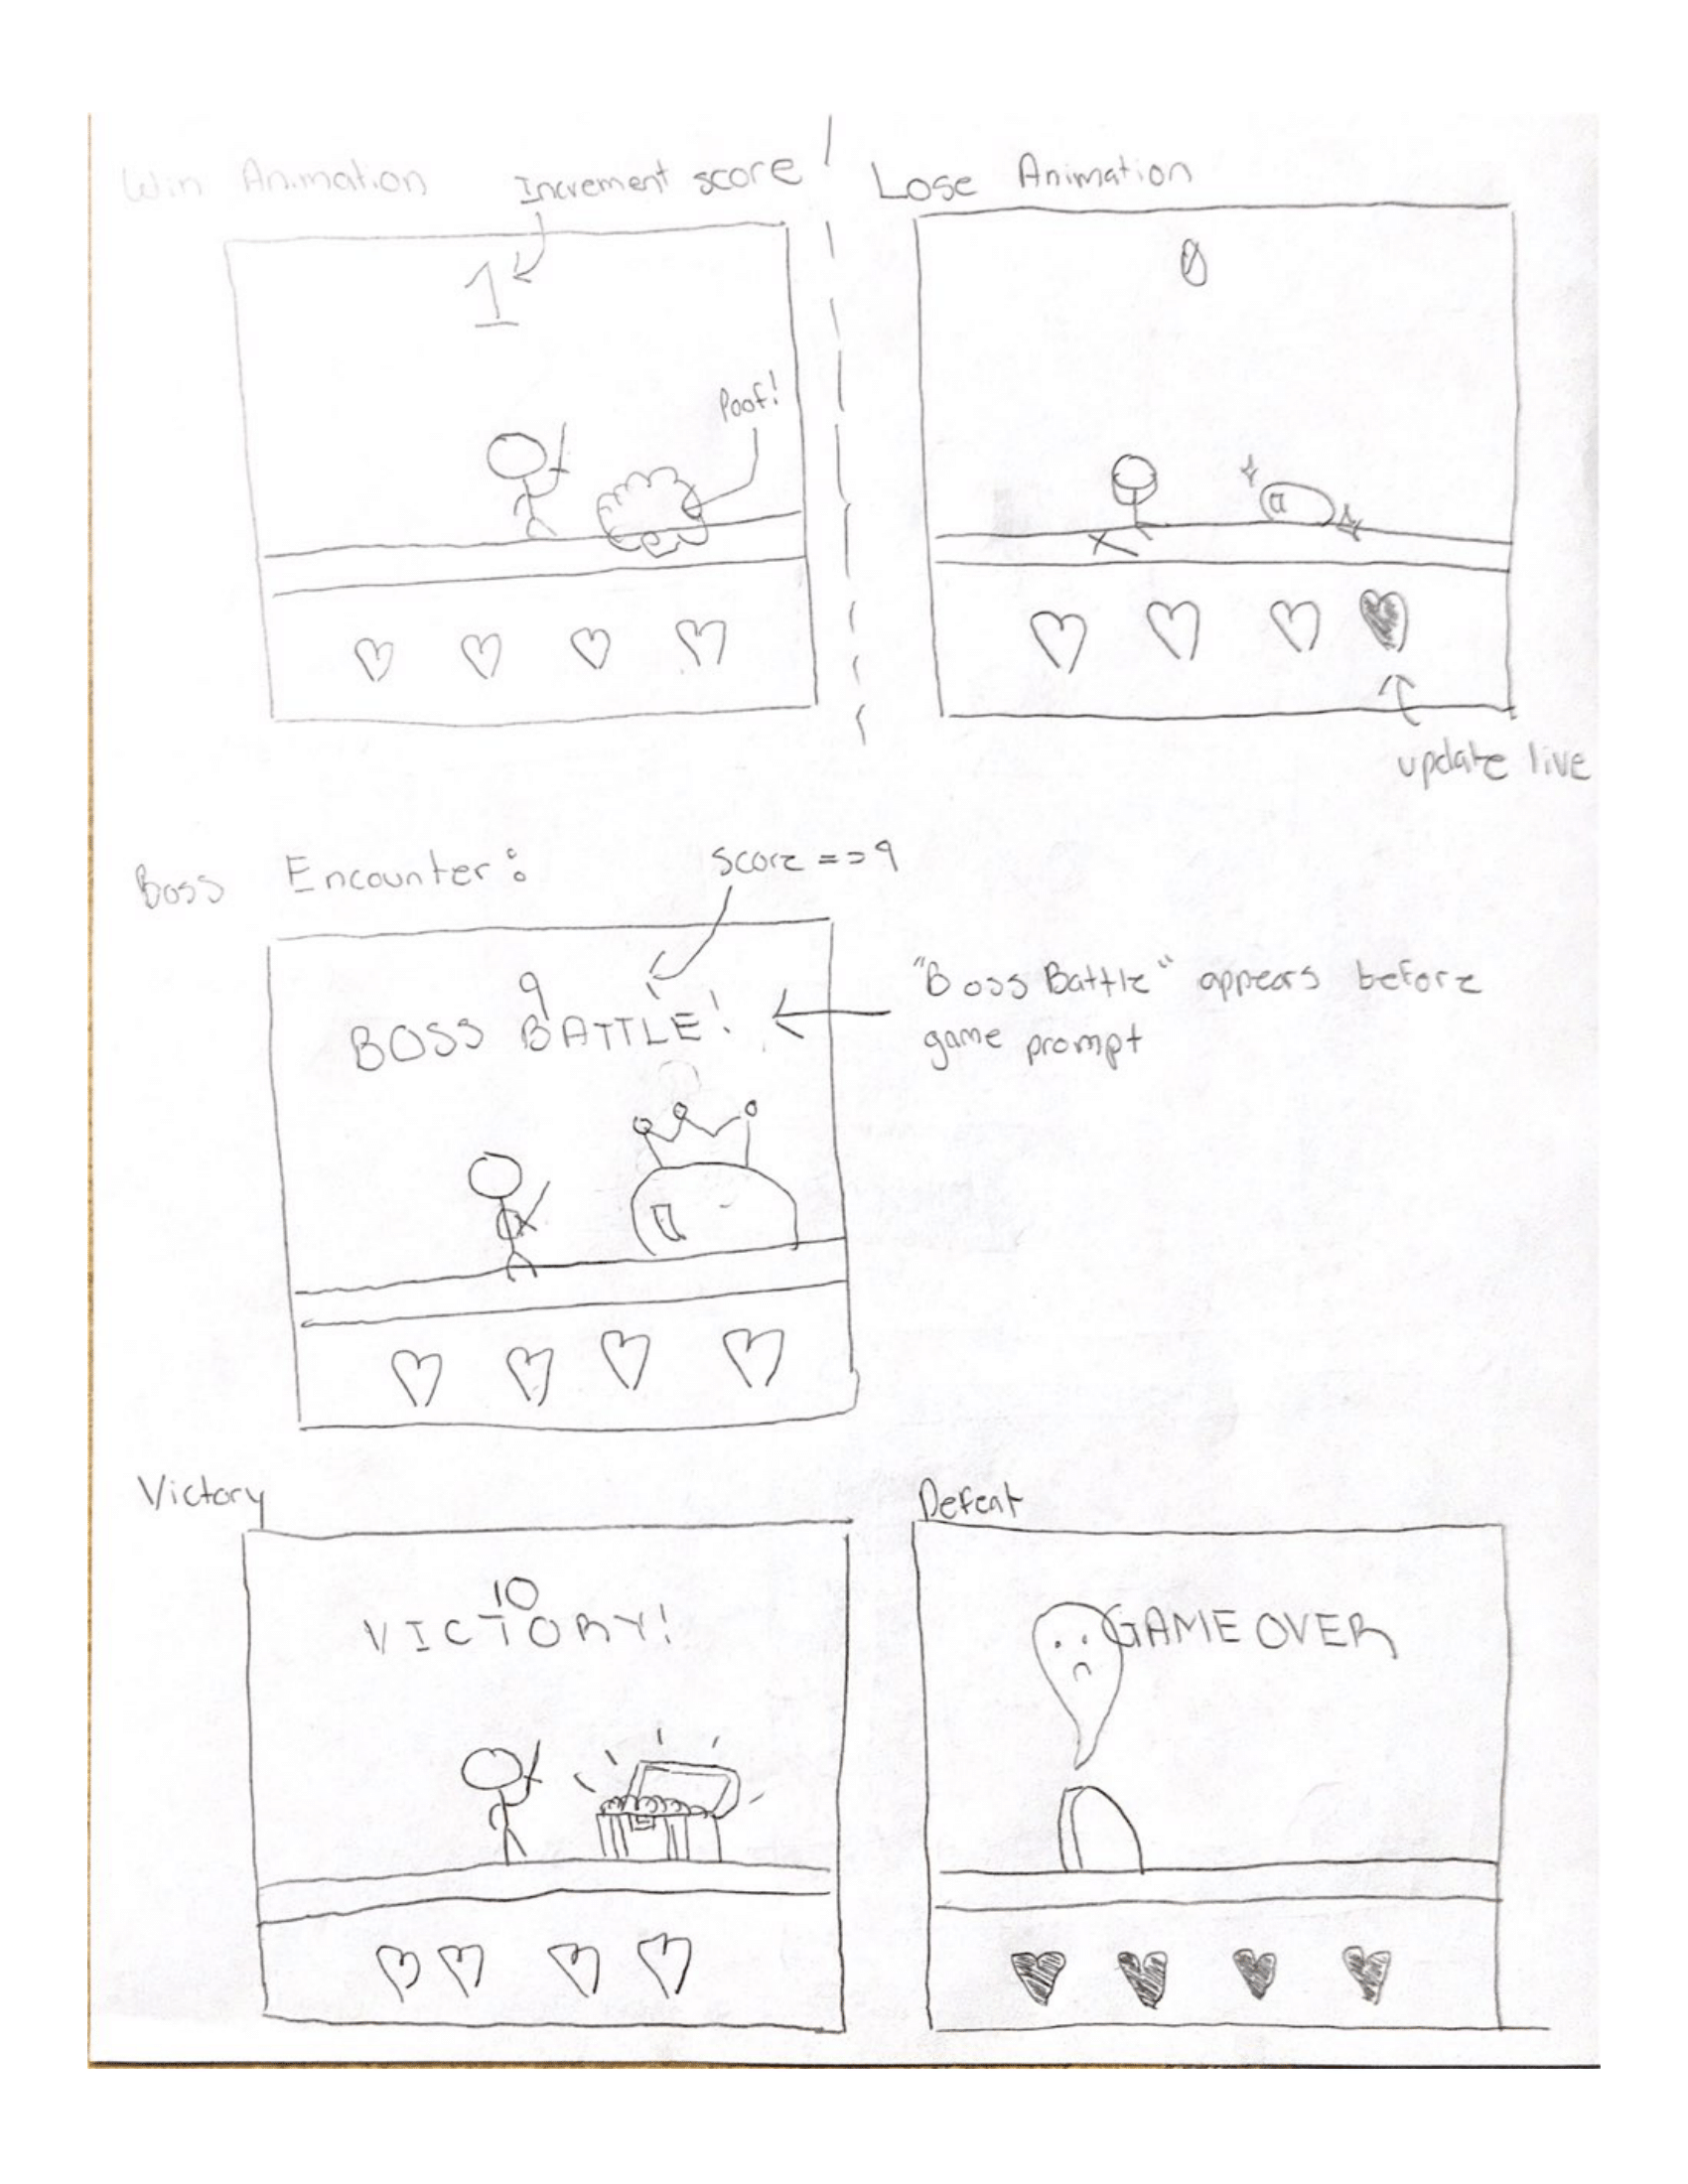 Win Animation
Increment score
1
Poof!
Lose Animation
0
update live
Boss Encounter:
Score == 9
9
BOSS BATTLE!
"Boss Battle" appears before
game prompt
Victory
10
VICTORY!
Defeat
GAME OVER